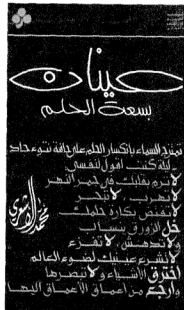 عينان
بسعة الحلم
تمتزج السماء بانكسار الحلم على حافة نتوء حاد
ليلة كنت أقول لنفسي
لاتره بقلبك في جمر النهر
لاتهرب، لاتبحر
لاتفتض بكارة حلمك
خل الزورق ينساب
ولاتدهش، لاتفزع
لاتشرع عينيك لضوء العالم
اخترق الأشياء ولاتبصرها
وارجع من أعماق الأعماق اليها
محمد الأشعري